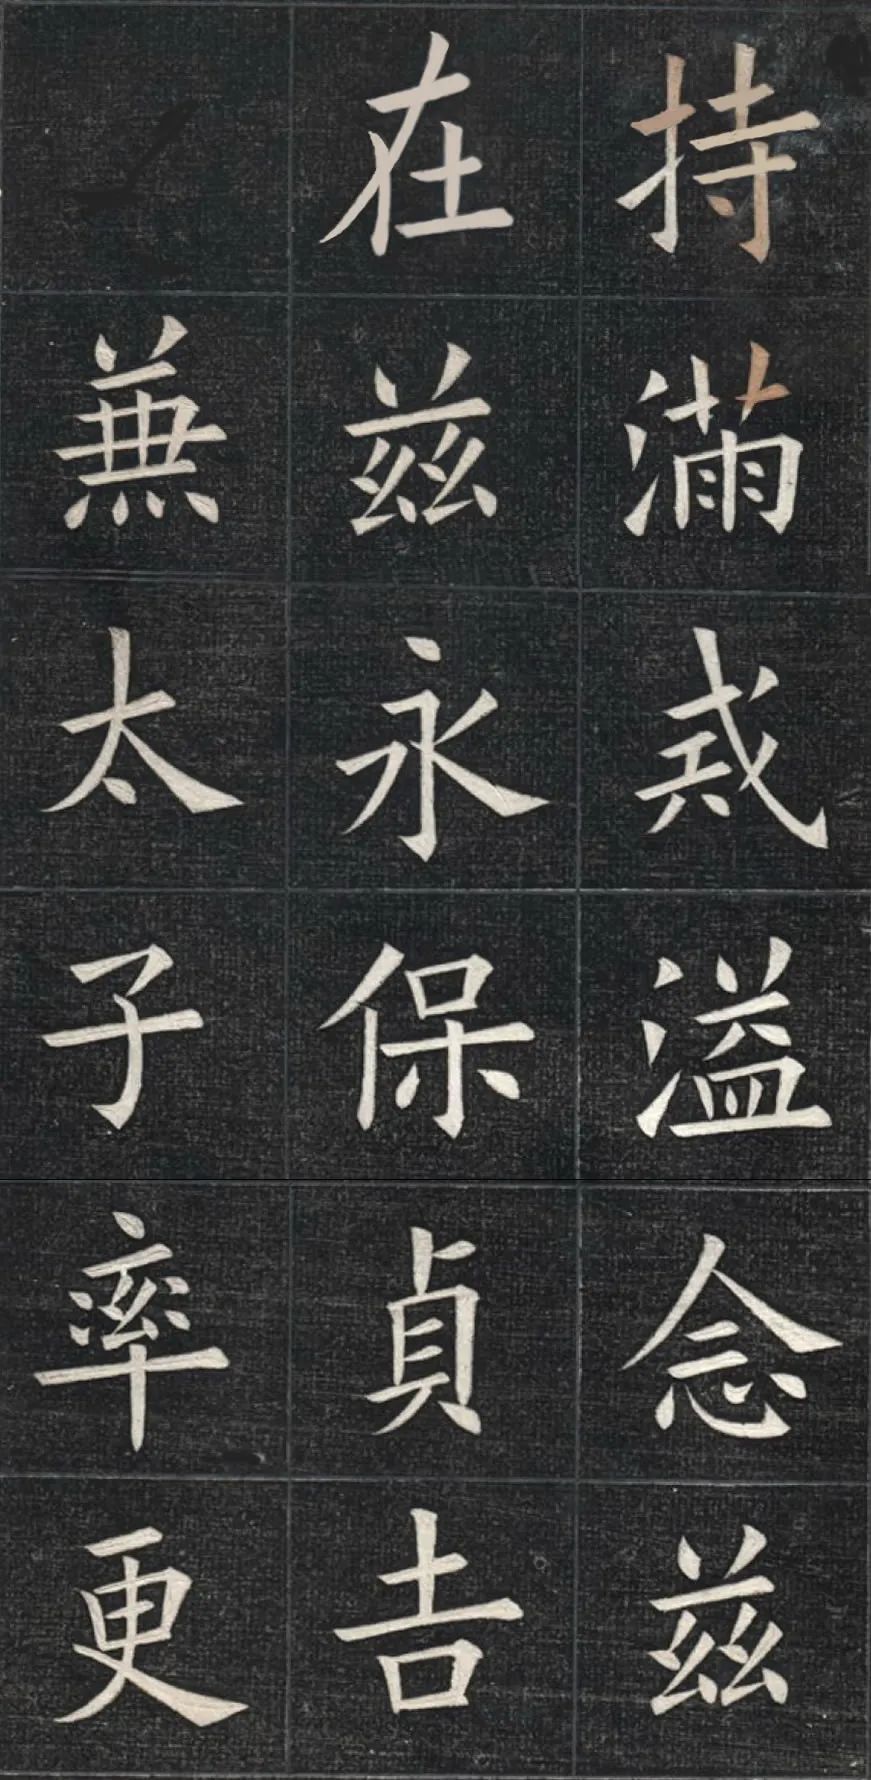 持滿戒溢念兹
在兹永保貞吉
兼太子率更